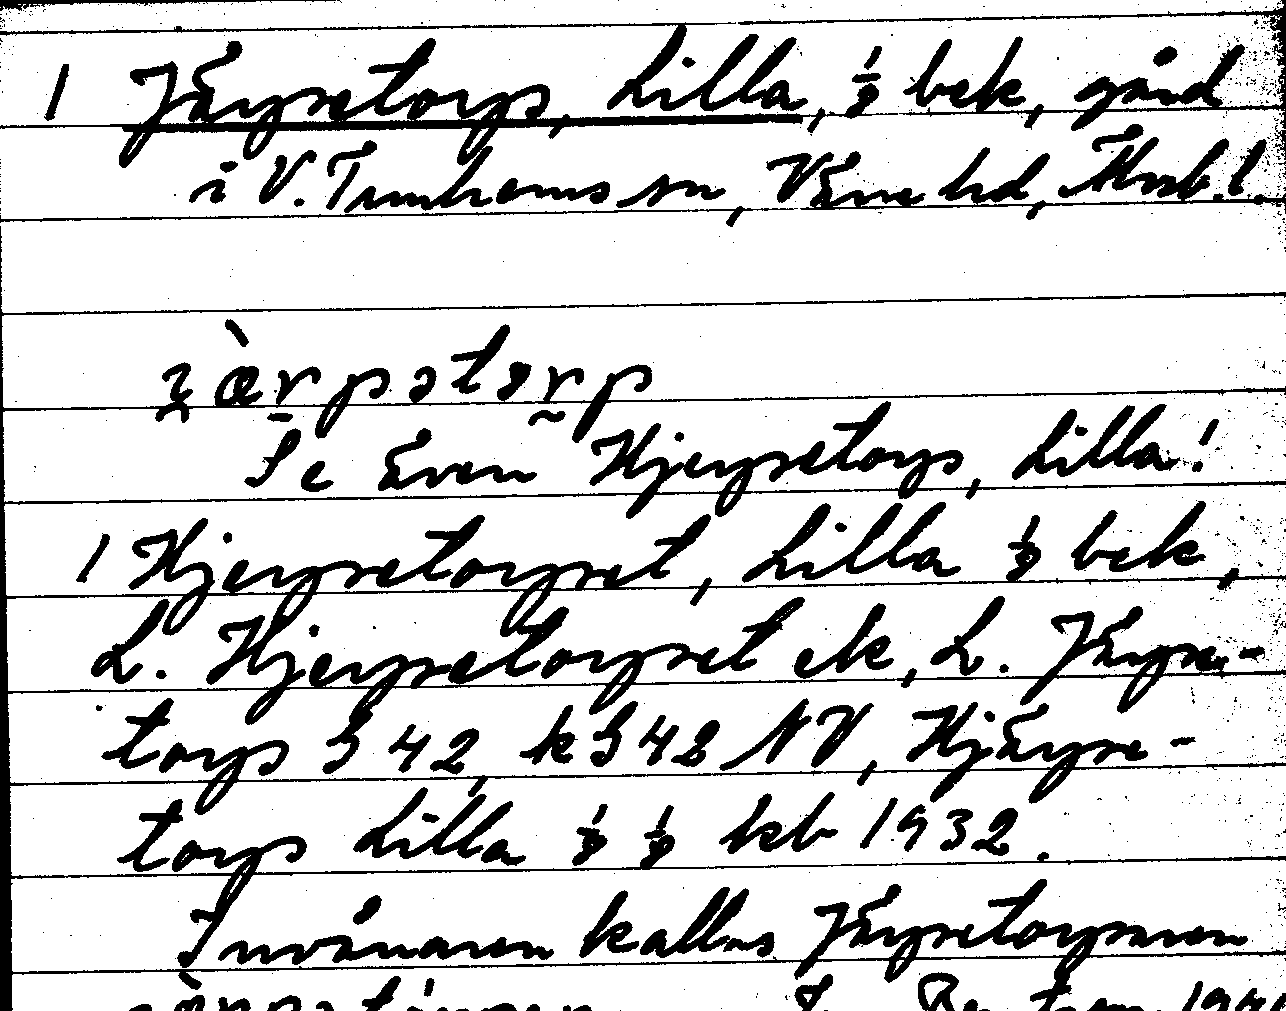 1 Järpetorp, Lilla, 1/8 bek, gård
i V. Tunhems sn, Väne hd, Älvsb. l.
jæ̀rpətərp
Se även Hjerpetorp, Lilla!
1 Hjerpetorpet, Lilla 1/8 bek,
L. Hjerpetorpet ek, L. Järpe-
torp S 42, k S 42 NV, Hjärpe-
torp Lilla 1/8 1/8 kb 1932.
Invånaren kallas Järpetorparen